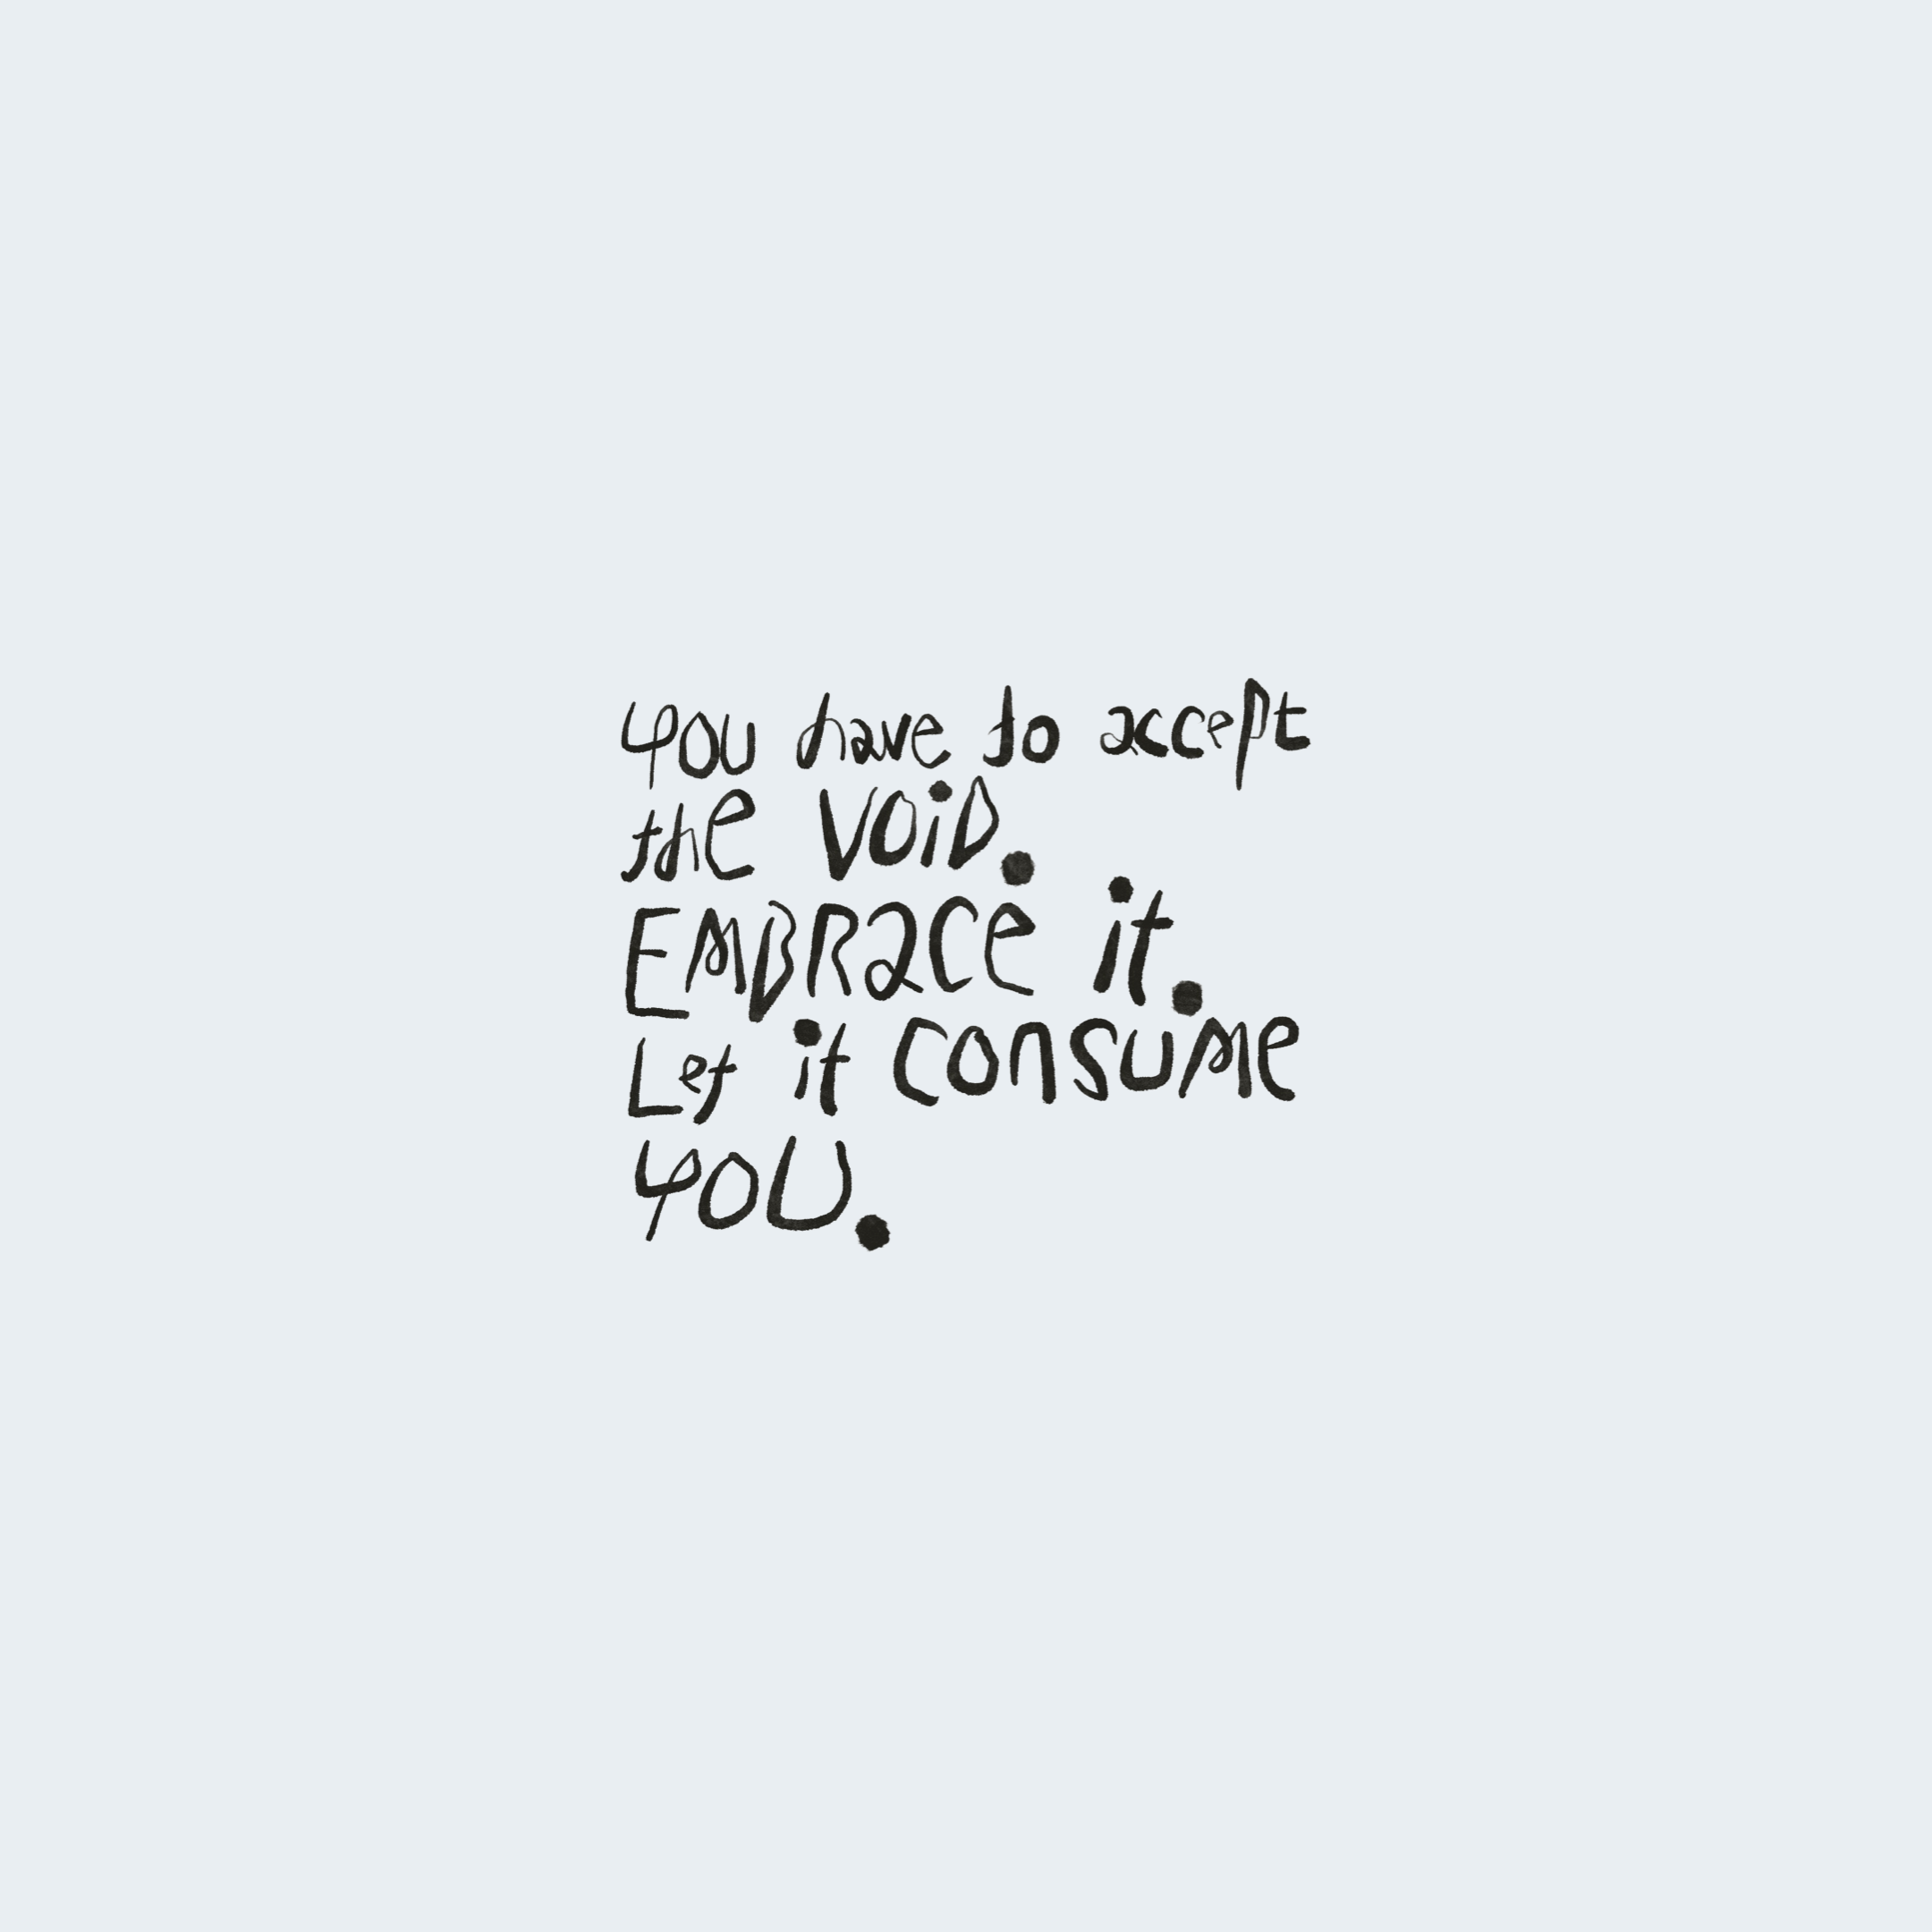 you have to accept
the VOiD.
EMBRACE it.
Let it CONSUME
YOU.